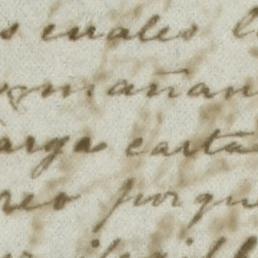 s cuales l
mañan
arga carta
reo porqu